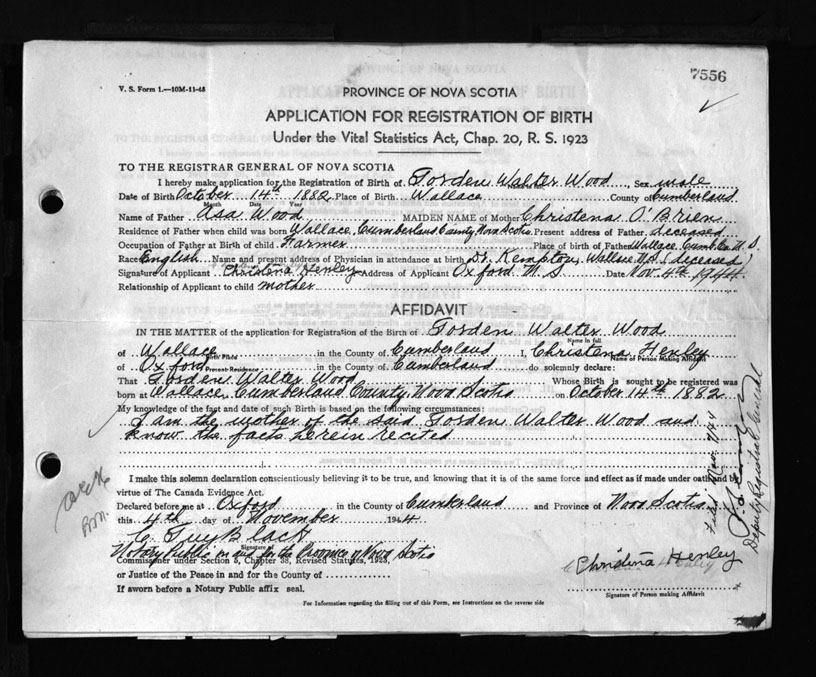 7556
V. S. Form 1.—10M-11-45
PROVINCE OF NOVA SCOTIA
APPLICATION FOR REGISTRATION OF BIRTH
Under the Vital Statistics Act, Chap. 20, R. S. 1923
TO THE REGISTRAR GENERAL OF NOVA SCOTIA
I hereby make application for the Registration of Birth of Gorden Walter Wood, Sex male
Date of Birth October 14th 1882 Place of Birth Wallace County of Cumberland
Month Date Year
Name of Father Asa Wood MAIDEN NAME of Mother Christena O'Brien
Residence of Father when child was born Wallace, Cumberland County Nova Scotia Present address of Father deceased
Occupation of Father at Birth of child Farmer Place of birth of Father Wallace, Cumb. Co. N.S.
Race English Name and present address of Physician in attendance at birth Dr. Kempton, Wallace N.S. (deceased)
Signature of Applicant Christena Henley Address of Applicant Oxford N.S. Date Nov. 4th 1944
Relationship of Applicant to child mother
AFFIDAVIT
IN THE MATTER of the application for Registration of the Birth of Gorden Walter Wood
Name in full
of Wallace in the County of Cumberland I, Christena Henley
Birth Place Name of Person Making Affidavit
of Oxford in the County of Cumberland do solemnly declare:
Present Residence
That Gorden Walter Wood Whose Birth is sought to be registered was
born at Wallace, Cumberland County Nova Scotia on October 14th 1882
My knowledge of the fact and date of such Birth is based on the following circumstances:
I am the mother of the said Gorden Walter Wood and
know the facts herein recited
I make this solemn declaration conscientiously believing it to be true, and knowing that it is of the same force and effect as if made under oath and by
virtue of The Canada Evidence Act.
Declared before me at Oxford in the County of Cumberland and Province of Nova Scotia
this 4th day of November 1944
C. Guy Black
Signature of
Notary Public in and for the Province of Nova Scotia
Commissioner under Section 5, Chapter 38, Revised Statutes, 1923,
or Justice of the Peace in and for the County of
If sworn before a Notary Public affix seal.
Christina Henley
Signature of Person making Affidavit
For Information regarding the filling out of this Form, see Instructions on the reverse side
Filed Nov. 7/44
Deputy Registrar General